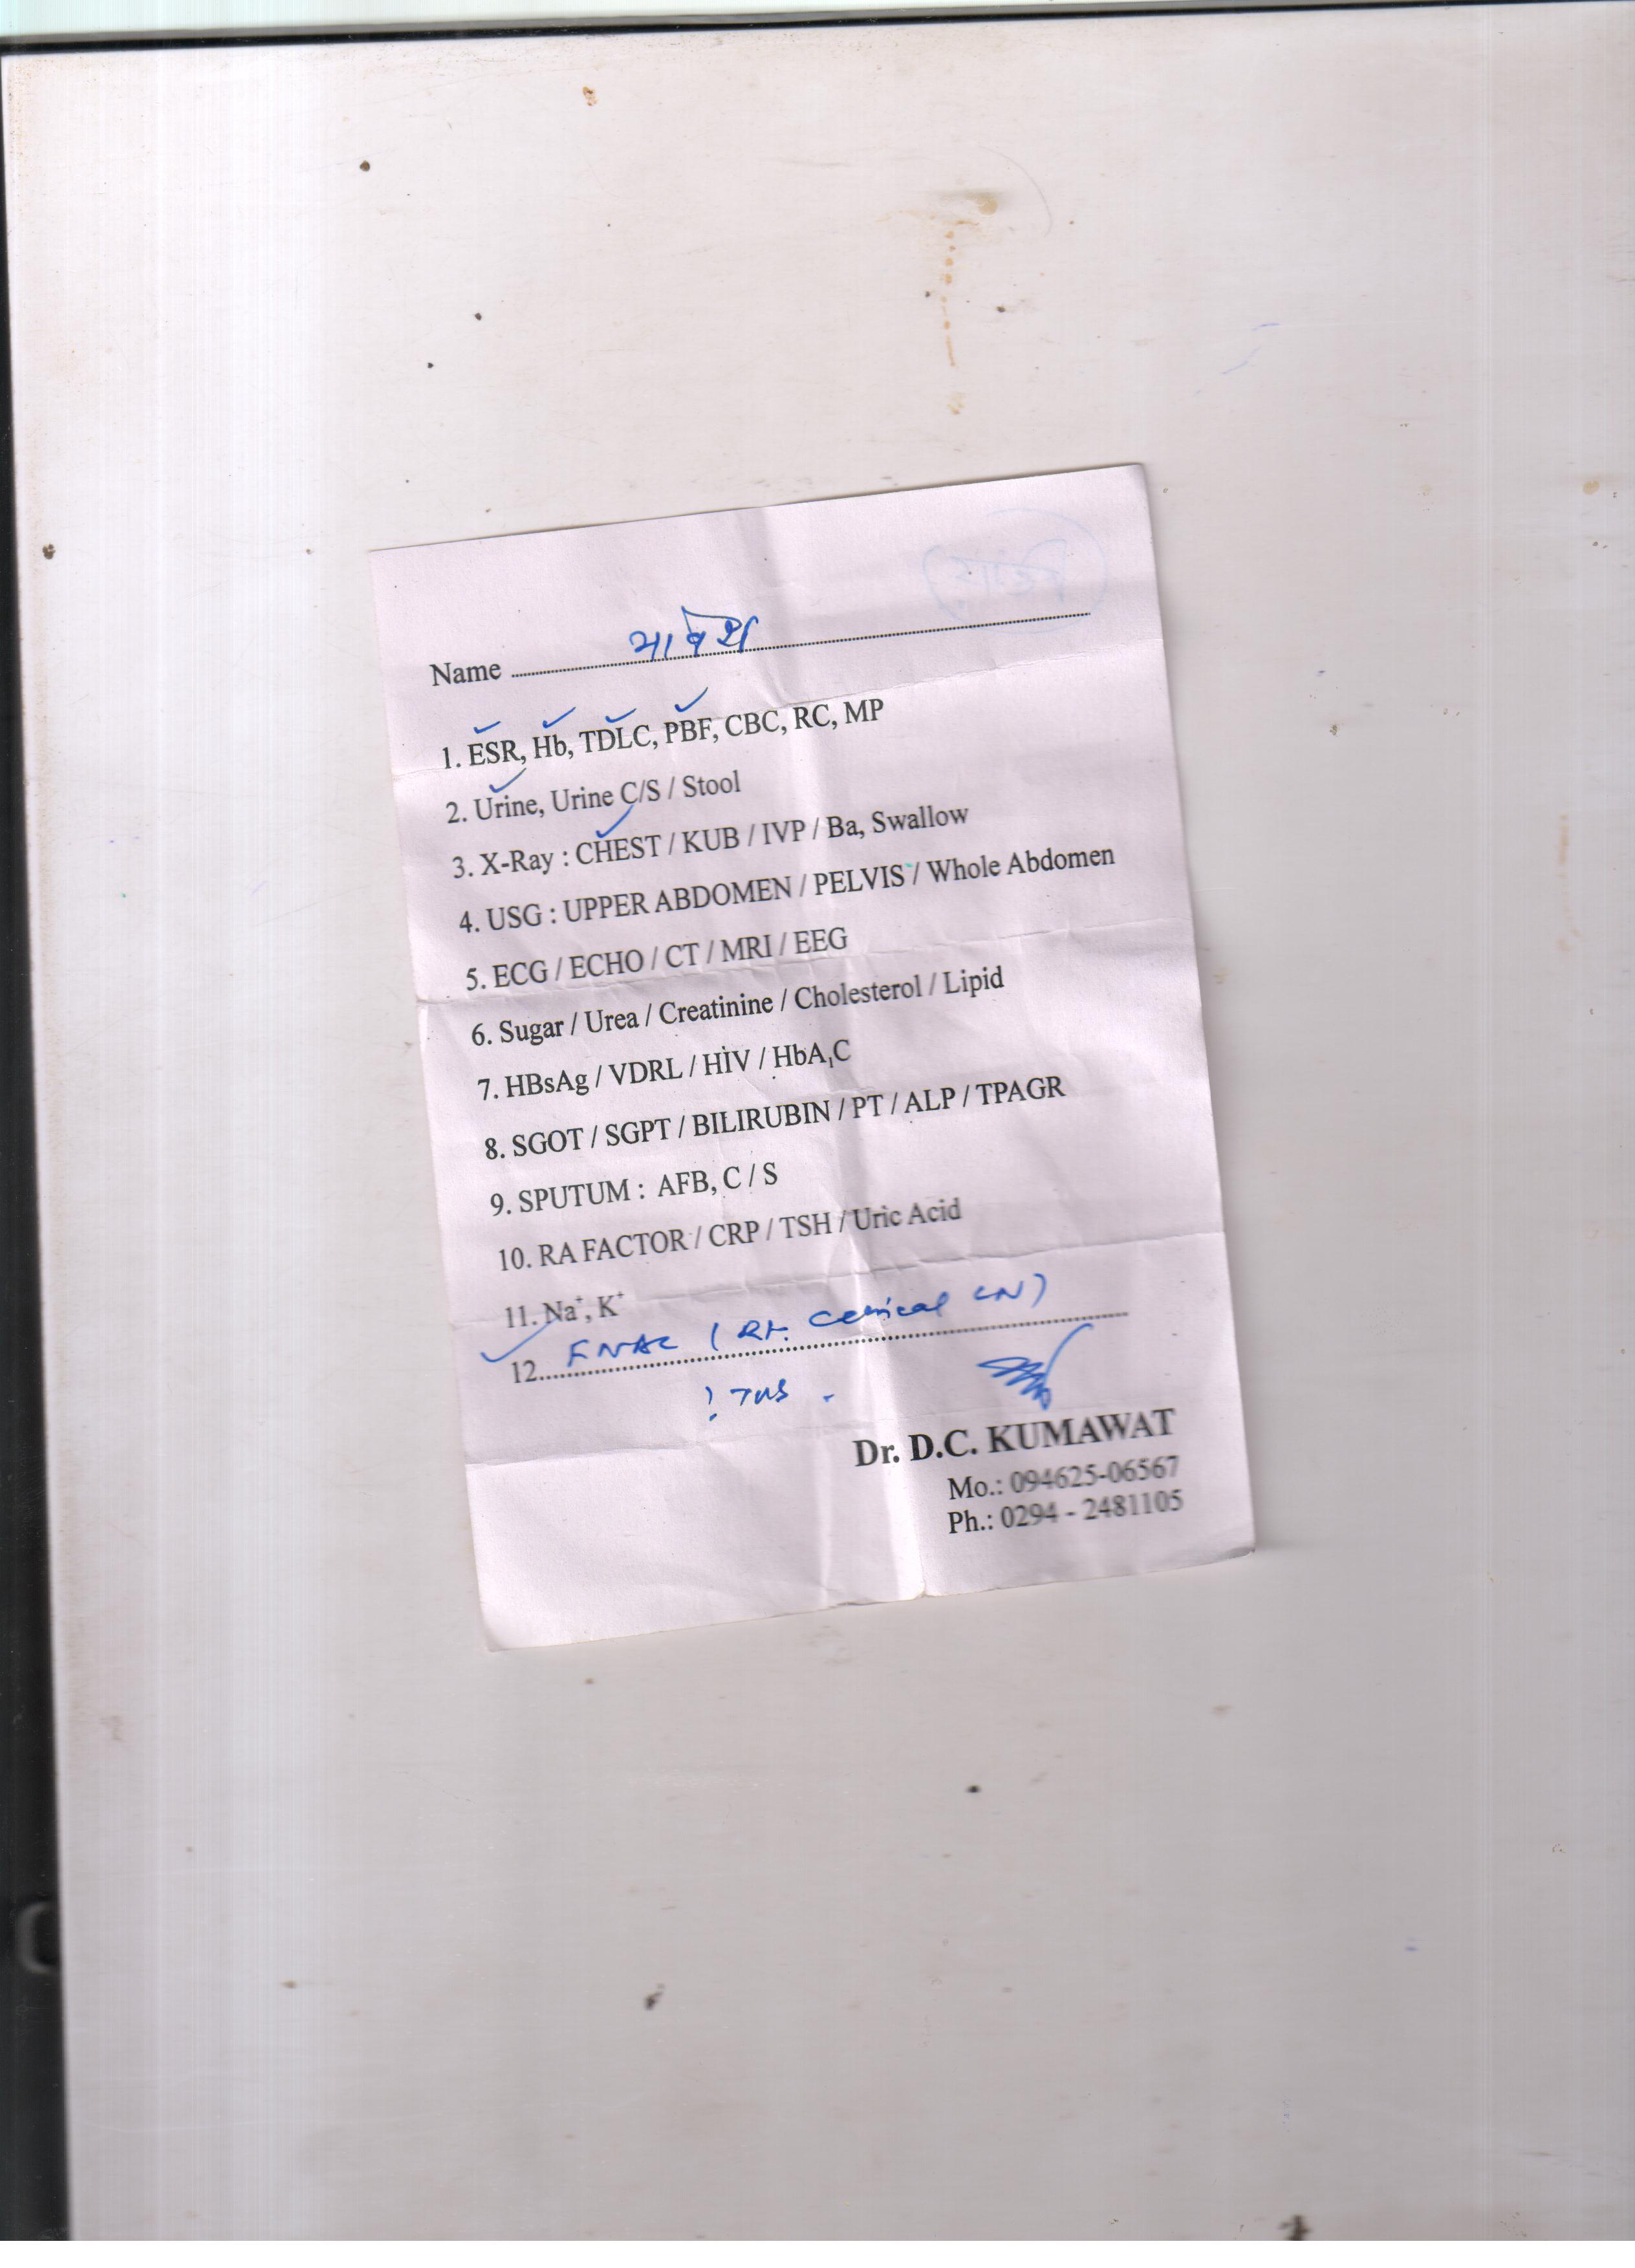 Name
1. ESR, Hb, TDLC, PBF, CBC, RC, MP
2. Urine, Urine C/S / Stool
3. X-Ray : CHEST / KUB / IVP / Ba, Swallow
4. USG : UPPER ABDOMEN / PELVIS / Whole Abdomen
5. ECG / ECHO / CT / MRI / EEG
6. Sugar / Urea / Creatinine / Cholesterol / Lipid
7. HBsAg / VDRL / HIV / HbA₁C
8. SGOT / SGPT / BILIRUBIN / PT / ALP / TPAGR
9. SPUTUM : AFB, C / S
10. RA FACTOR / CRP / TSH / Uric Acid
11. Na⁺, K⁺
12. FNAC ( Rt. Cervical LN)
Dr. D.C. KUMAWAT
Mo.: 094625-06567
Ph.: 0294 - 2481105